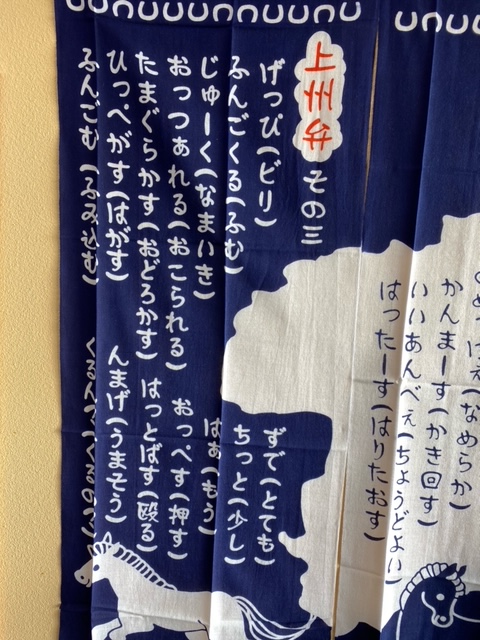 (なめらか)
かんまーす(かき回す)
いいあんべぇ(ちょうどよい)
はったーす(はりたおす)
上州弁 その三
げっぴ(ビリ)
ずで(とても)
ふんごくる(ふむ)
ちっと(少し)
じゅーく(なまいき)
はぁ(もう)
おっつぁれる(おこられる)
おっぺす(押す)
たまぐらかす(おどろかす)
はっとばす(殴る)
ひっぺがす(はがす)
んまげ(うまそう)
ふんごむ(ふみ込む)